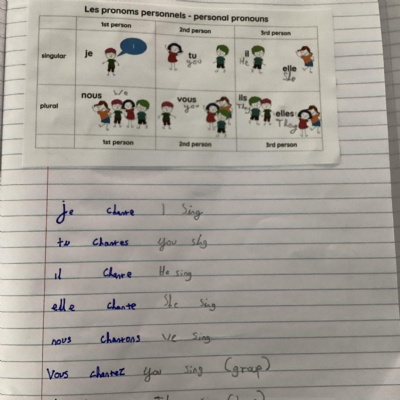 Les pronoms personnels - personal pronouns
1st person 2nd person 3rd person
singular je I tu you il He elle
plural nous we vous you ils They elles They
1st person 2nd person 3rd person
je chante I sing
tu chantes you sing
il chante He sing
elle chante She sing
nous chantons we sing
Vous chantez you sing (group)